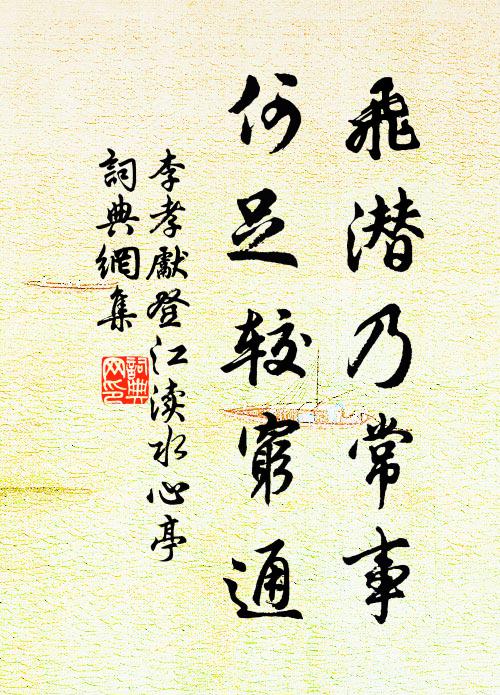 飛潜乃常事
何足较窮通
李孝獻登江渎水心亭
詞典網集
詞典
网印